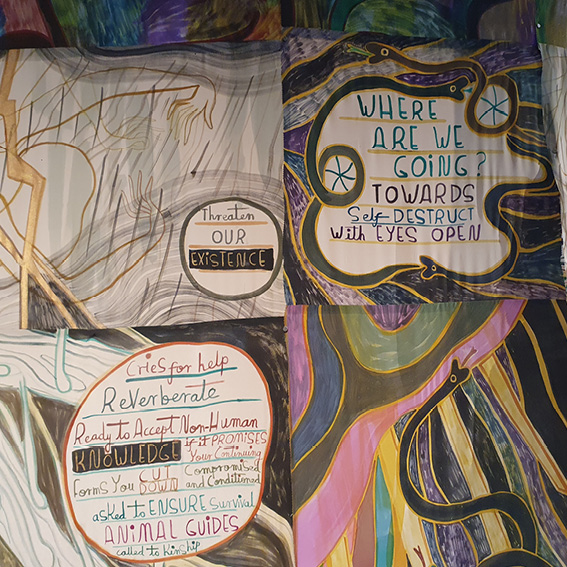 Threaten
OUR
EXISTENCE
WHERE
ARE WE
GOING?
TOWARDS
Self-DESTRUCT
With EYES OPEN
CRIES for help
ReVerberate
Ready to Accept Non-Human
KNOWLEDGE if it PROMISES
Your Continuing
forms You CUT DOWN Compromised and Conditioned
asked to ENSURE Survival
ANIMAL GUIDES
called to kinship